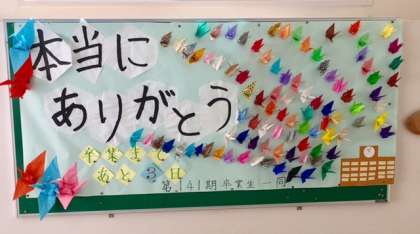 本当に
ありがとう
卒業まで
あと3日
第141期卒業生一同